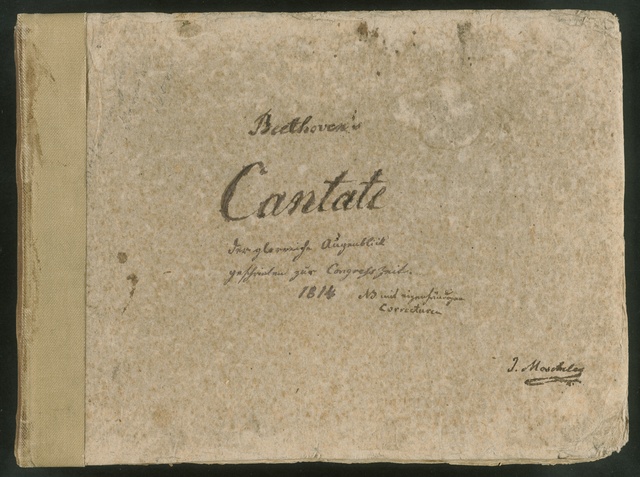 Beethoven's
Cantate
Der glorreiche Augenblick
geschrieben zur Congress Zeit.
1814 NB mit eigenhändigen
Correcturen
I. Moscheles